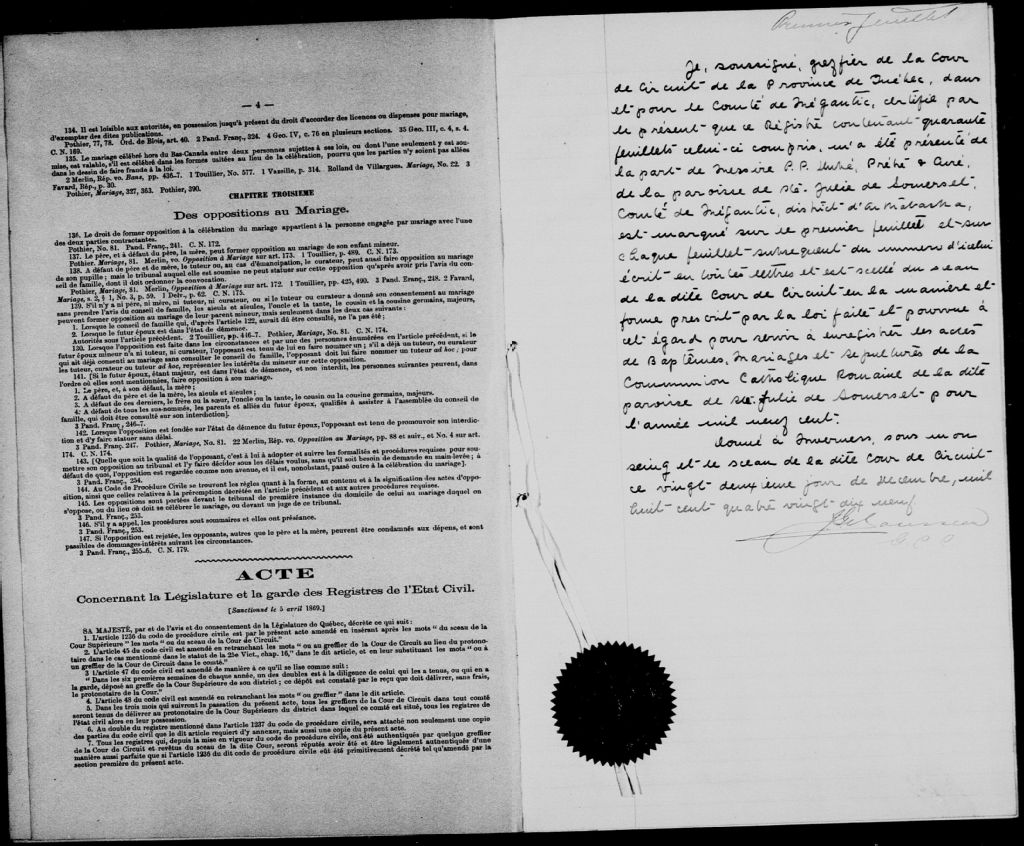 — 4 —
134. Il est loisible aux autorités, en possession jusqu'à présent du droit d'accorder des licences ou dispenses pour mariage,
d'exempter des dites publications.
Pothier, 77, 78. Ord. de Blois, art. 40. 2 Pand. Franç., 324. 4 Geo. IV, c. 76 en plusieurs sections. 35 Geo. III, c. 4, s. 4.
C. N. 169.
135. Le mariage célébré hors du Bas-Canada entre deux personnes sujettes à ses lois, ou dont l'une seulement y est sou-
mise, est valable, s'il est célébré dans les formes usitées au lieu de la célébration, pourvu que les parties n'y soient pas allées
dans le dessein de faire fraude à la loi.
2 Merlin, Rép. vo. Bans, pp. 436-7. 1 Touillier, No. 577. 1 Vazille, p. 314. Rolland de Villargues. Mariage, No. 22. 3
Favard, Rép., p. 30.
Pothier, Mariage, 327, 363. Pothier, 390.
CHAPITRE TROISIEME
Des oppositions au Mariage.
136. Le droit de former opposition à la célébration du mariage appartient à la personne engagée par mariage avec l'une
des deux parties contractantes.
Pothier, No. 81. Pand. Franç., 241. C. N. 172.
137. Le père, et à défaut du père, la mère, peut former opposition au mariage de son enfant mineur.
Pothier, Mariage, 81. Merlin, vo. Opposition à Mariage sur art. 173. 1 Touillier, p. 489. C. N. 173.
138. A défaut de père et de mère, le tuteur ou, au cas d'émancipation, le curateur, peut aussi faire opposition au mariage
de son pupille; mais le tribunal auquel elle est soumise ne peut statuer sur cette opposition qu'après avoir pris l'avis du con-
seil de famille, dont il doit ordonner la convocation.
Pothier, Mariage, 81. Merlin, Opposition à Mariage sur art. 172. 1 Touillier, pp. 425, 490. 3 Pand. Franç., 248. 2 Favard,
Mariage, s. 2, § 1, No. 3, p. 59. 1 Delv., p. 62. C. N. 175.
139. S'il n'y a ni père, ni mère, ni tuteur, ni curateur, ou si le tuteur ou curateur a donné son consentement au mariage
sans prendre l'avis du conseil de famille, les aïeuls et aïeules, l'oncle et la tante, le cousin et la cousine germains, majeurs,
peuvent former opposition au mariage de leur parent mineur, mais seulement dans les deux cas suivants:
1. Lorsque le conseil de famille qui, d'après l'article 122, aurait dû être consulté, ne l'a pas été;
2. Lorsque le futur époux est dans l'état de démence.
Autorités sous l'article précédent. 2 Touillier, pp. 416-7. Pothier, Mariage, No. 81. C. N. 174.
130. Lorsque l'opposition est faite dans les circonstances et par une des personnes énumérées en l'article précédent, si le
futur époux mineur n'a ni tuteur, ni curateur, l'opposant est tenu de lui en faire nommer un; s'il a déjà un tuteur, ou curateur
qui ait déjà consenti au mariage sans consulter le conseil de famille, l'opposant doit lui faire nommer un tuteur ad hoc; pour
les tuteur, curateur ou tuteur ad hoc, représenter les intérêts du mineur sur cette opposition.
141. [Si le futur époux, étant majeur, est dans l'état de démence, et non interdit, les personnes suivantes peuvent, dans
l'ordre où elles sont mentionnées, faire opposition à son mariage.
1. Le père, et, à son défaut, la mère;
2. A défaut du père et de la mère, les aïeuls et aïeules;
3. A défaut de ces derniers, le frère ou la sœur, l'oncle ou la tante, le cousin ou la cousine germains, majeurs.
4. A défaut de tous les sus-nommés, les parents et alliés du futur époux, qualifiés à assister à l'assemblée du conseil de
famille, qui doit être consulté sur son interdiction].
3 Pand. Franç., 246-7.
142. Lorsque l'opposition est fondée sur l'état de démence du futur époux, l'opposant est tenu de promouvoir son interdic-
tion et d'y faire statuer sans délai.
3 Pand. Franç. 247. Pothier, Mariage, No. 81. 22 Merlin, Rép. vo. Opposition au Mariage, pp. 88 et suiv., et No. 4 sur art.
174. C. N. 174.
143. [Quelque que soit la qualité de l'opposant, c'est à lui à adopter et suivre les formalités et procédures requises pour sou-
mettre son opposition au tribunal et l'y faire décider sous les délais voulus, sans qu'il soit besoin de demande en main-levée; à
défaut de quoi, l'opposition est regardée comme non avenue, et il est, nonobstant, passé outre à la célébration du mariage].
3 Pand. Franç., 254.
144. Au Code de Procédure Civile se trouvent les règles quant à la forme, au contenu et à la signification des actes d'oppo-
sition, ainsi que celles relatives à la péremption décrétée en l'article précédent et aux autres procédures requises.
145. Les oppositions sont portées devant le tribunal de première instance du domicile de celui au mariage duquel on
s'oppose, ou du lieu où doit se célébrer le mariage, ou devant un juge de ce tribunal.
3 Pand. Franç., 253.
146. S'il y a appel, les procédures sont sommaires et elles ont préséance.
3 Pand. Franç., 253.
147. Si l'opposition est rejetée, les opposants, autres que le père et la mère, peuvent être condamnés aux dépens, et sont
passibles de dommages-intérêts suivant les circonstances.
3 Pand. Franç., 255-6. C. N. 179.
ACTE
Concernant la Législature et la garde des Registres de l'Etat Civil.
[Sanctionné le 5 avril 1869.]
SA MAJESTÉ, par et de l'avis et du consentement de la Législature de Québec, décrète ce qui suit:
1. L'article 1236 du code de procédure civile est par le présent acte amendé en insérant après les mots "du sceau de la
Cour Supérieure" les mots "ou du sceau de la Cour de Circuit."
2. L'article 45 du code civil est amendé en retranchant les mots "ou au greffier de la Cour de Circuit au lieu du protono-
taire dans le cas mentionné dans le statut de la 25e Vict., chap. 16," dans le dit article, et en leur substituant les mots "ou à
un greffier de la Cour de Circuit dans le comté."
3 L'article 47 du code civil est amendé de manière à ce qu'il se lise comme suit:
"Dans les six premières semaines de chaque année, un des doubles est à la diligence de celui qui les a tenus, ou qui en a
la garde, déposé au greffe de la Cour Supérieure de son district; ce dépôt est constaté par le reçu que doit délivrer, sans frais,
le protonotaire de la Cour."
4. L'article 48 du code civil est amendé en retranchant les mots "ou greffier" dans le dit article.
5. Dans les trois mois qui suivront la passation du présent acte, tous les greffiers de la Cour de Circuit dans tout comté
seront tenus de délivrer au protonotaire de la Cour Supérieure du district dans lequel ce comté est situé, tous les registres de
l'état civil alors en leur possession.
6. Au double du registre mentionné dans l'article 1237 du code de procédure civile, sera attaché non seulement une copie
des parties du code civil que le dit article requiert d'y annexer, mais aussi une copie du présent acte.
7. Tous les registres qui, depuis la mise en vigueur du code de procédure civile, ont été authentiqués par quelque greffier
de la Cour de Circuit et revêtus du sceau de la dite Cour, seront réputés avoir été et être légalement authentiqués d'une
manière aussi parfaite que si l'article 1236 du dit code de procédure civile eût été primitivement décrété tel qu'amendé par la
section première du présent acte.
Premier feuillet
Je, soussigné, greffier de la Cour
de Circuit de la Province de Québec, dans
et pour le Comté de Mégantic, certifie par
le présent que ce Régistre contenant quarante
feuillets celui-ci compris, m'a été présenté de
la part de Messire P. P. Dubé, Prêtre & Curé,
de la paroisse de Ste. Julie de Somerset,
Comté de Mégantic, district d'Arthabaska,
est marqué sur le premier feuillet et sur
chaque feuillet subsequent du numero d'icelui
écrit en toutes lettres et est scellé du sceau
de la dite Cour de Circuit en la manière et
forme prescrit par la loi faite et pourvue à
cet égard pour servir à enregistrer les actes
de Baptêmes, Mariages et Sepultures de la
Communion Catholique Romaine de la dite
paroisse de Ste. Julie de Somerset pour
l'année mil neuf cent.
Donné à Inverness, sous mon
seing et le sceau de la dite Cour de Circuit
ce vingt deuxième jour de Decembre, mil
huit cent quatre vingt dix neuf
G. C. C.